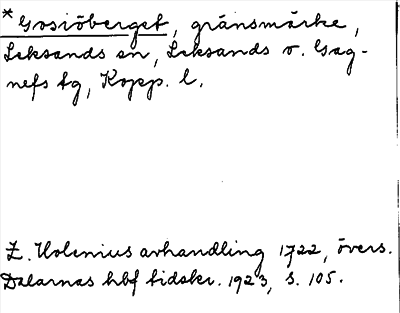 * Gosiöberget, gränsmärke,
Leksands sn, Leksands o. Gag-
nefs tg, Kopp. l.
Z. Holenius avhandling 1722, övers.
Dalarnas hbf tidskr. 1923, s. 105.